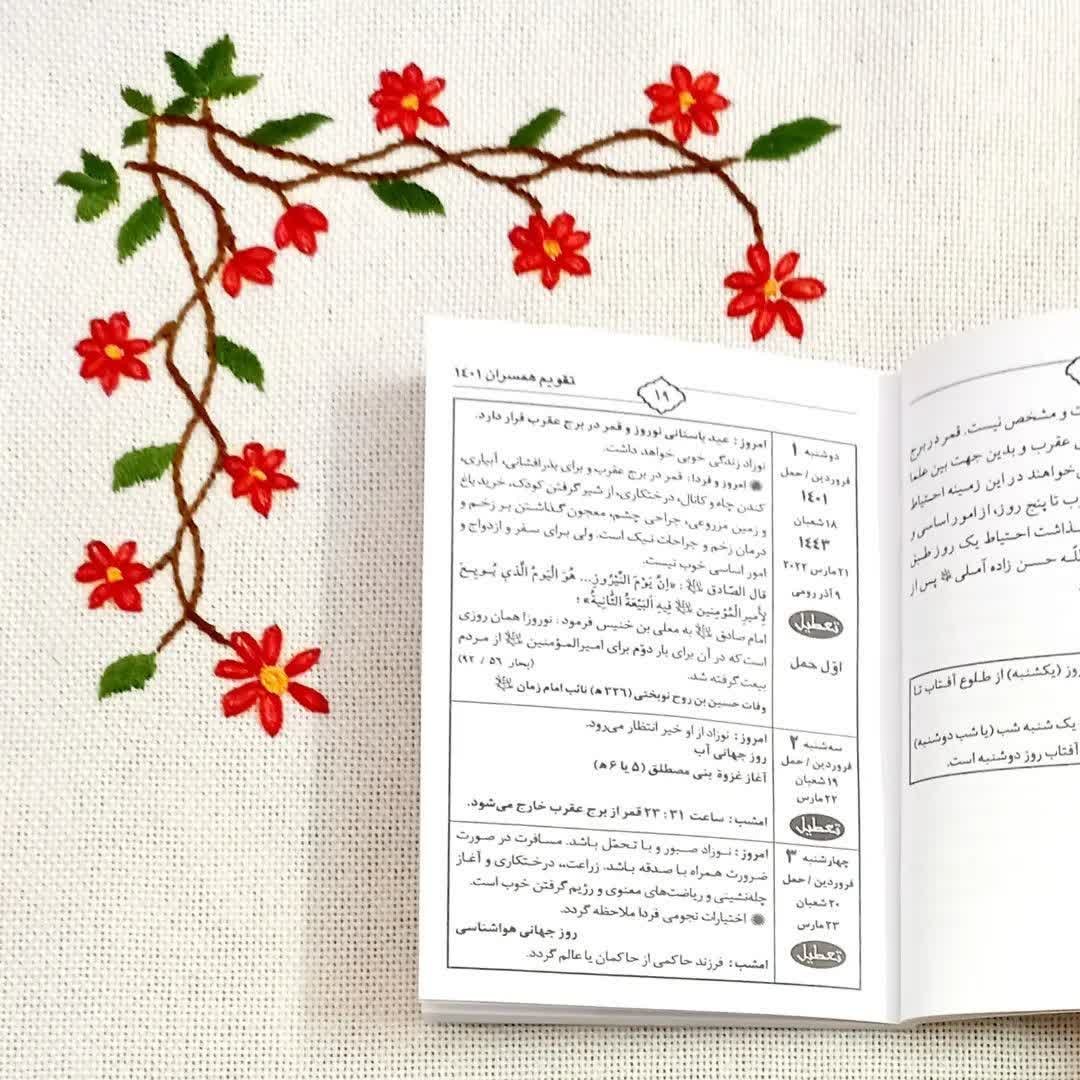 تقویم همسران ۱۴۰۱
۱۹
دوشنبه ۱
فروردین / حمل
۱۴۰۱
۱۸ شعبان
۱۴۴۳
۲۱ مارس ۲۰۲۲
۹ آذر رومی
تعطیل
اوّل حمل
امروز: عید باستانی نوروز و قمر در برج عقرب قرار دارد.
نوزاد زندگی خوبی خواهد داشت.
امروز و فردا: قمر در برج عقرب و برای بذرافشانی، آبیاری،
کندن چاه و کانال، درختکاری، از شیر گرفتن کودک، خرید باغ
و زمین مزروعی، جراحی چشم، معجون گذاشتن بر زخم و
درمان زخم و جراحات نیک است. ولی برای سفر و ازدواج و
امور اساسی خوب نیست.
قال الصّادق ﷷ: «اِنَّ یَوْمَ النَّیْروزِ... هُوَ الْیَومُ الَّذي بُویِعَ
لِأَمیرِ الْمُؤْمِنینَ فِیهِ اَلْبَیْعَةُ الثّانِیةُ»؛
امام صادق به معلی بن خنیس فرمود: نوروز! همان روزی
است که در آن برای بار دوّم برای امیرالمؤمنین از مردم
بیعت گرفته شد. (بحار ۵۶ / ۹۲)
وفات حسین بن روح نوبختی (۳۲۶ ه) نائب امام زمان
سه‌شنبه ۲
فروردین / حمل
۱۹ شعبان
۲۲ مارس
تعطیل
امروز: نوزاد از او خیر انتظار می‌رود.
روز جهانی آب
آغاز غزوة بنی مصطلق (۵ یا ۶ ه)
امشب: ساعت ۳۱ : ۲۳ قمر از برج عقرب خارج می‌شود.
چهارشنبه ۳
فروردین / حمل
۲۰ شعبان
۲۳ مارس
تعطیل
امروز: نوزاد صبور و با تحمّل باشد. مسافرت در صورت
ضرورت همراه با صدقه باشد. زراعت،، درختکاری و آغاز
چله‌نشینی و ریاضت‌های معنوی و رژیم گرفتن خوب است.
اختیارات نجومی فردا ملاحظه گردد.
روز جهانی هواشناسی
امشب: فرزند حاکمی از حاکمان یا عالم گردد.
و مشخص نیست. قمر در برج
عقرب و بدین جهت بین علما
خواهند در این زمینه احتیاط
تا پنج روز، از امور اساسی و
احتیاط یک روز طبق
حسن زاده آملی پس از
(یکشنبه) از طلوع آفتاب تا
یک شنبه شب (یا شب دوشنبه)
آفتاب روز دوشنبه است.